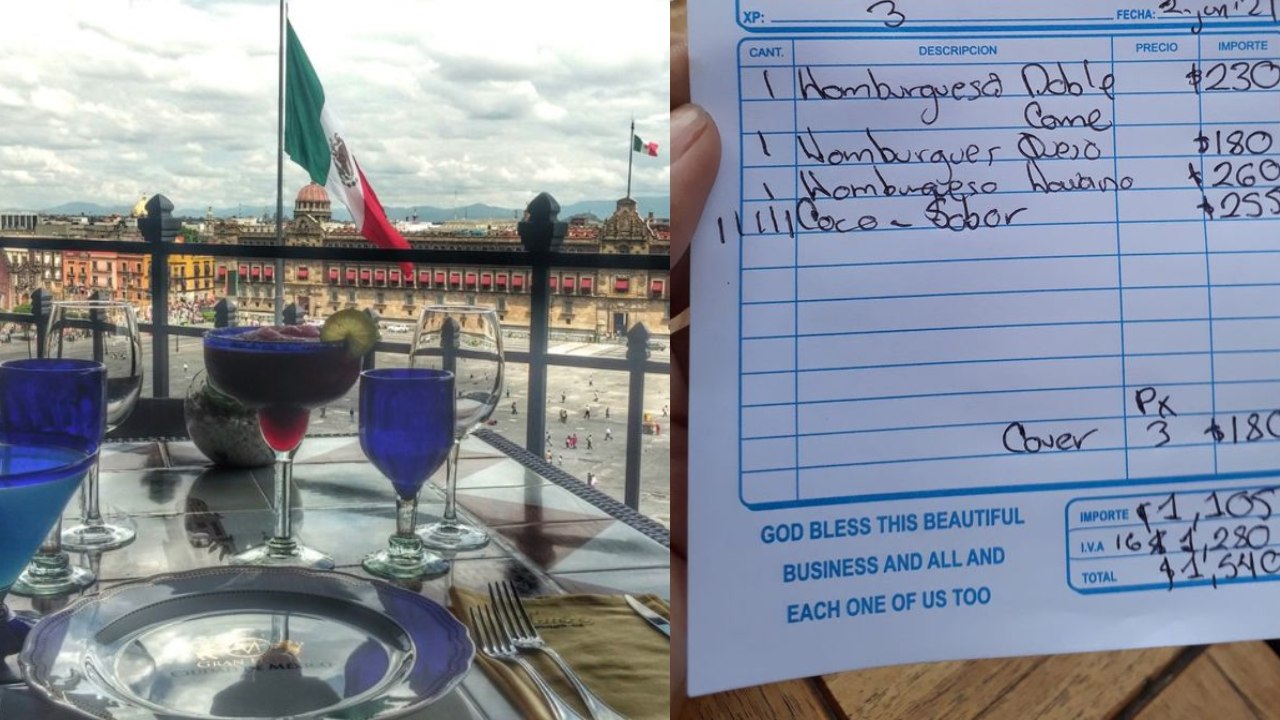 GRAN
CIUDAD DE MÉXICO
XP: 3 FECHA: 2-jun'21
CANT. DESCRIPCION PRECIO IMPORTE
1 Hamburguesa Doble $230
Carne
1 Hamburgues Queso $180
1 Hamburguesa Hawaiana $260
1 1 1 1 1 Coca - Sabor $255
Px
Cover 3 $180
GOD BLESS THIS BEAUTIFUL
BUSINESS AND ALL AND
EACH ONE OF US TOO
IMPORTE $1,105
I.V.A 16 $1,280
TOTAL $1,540